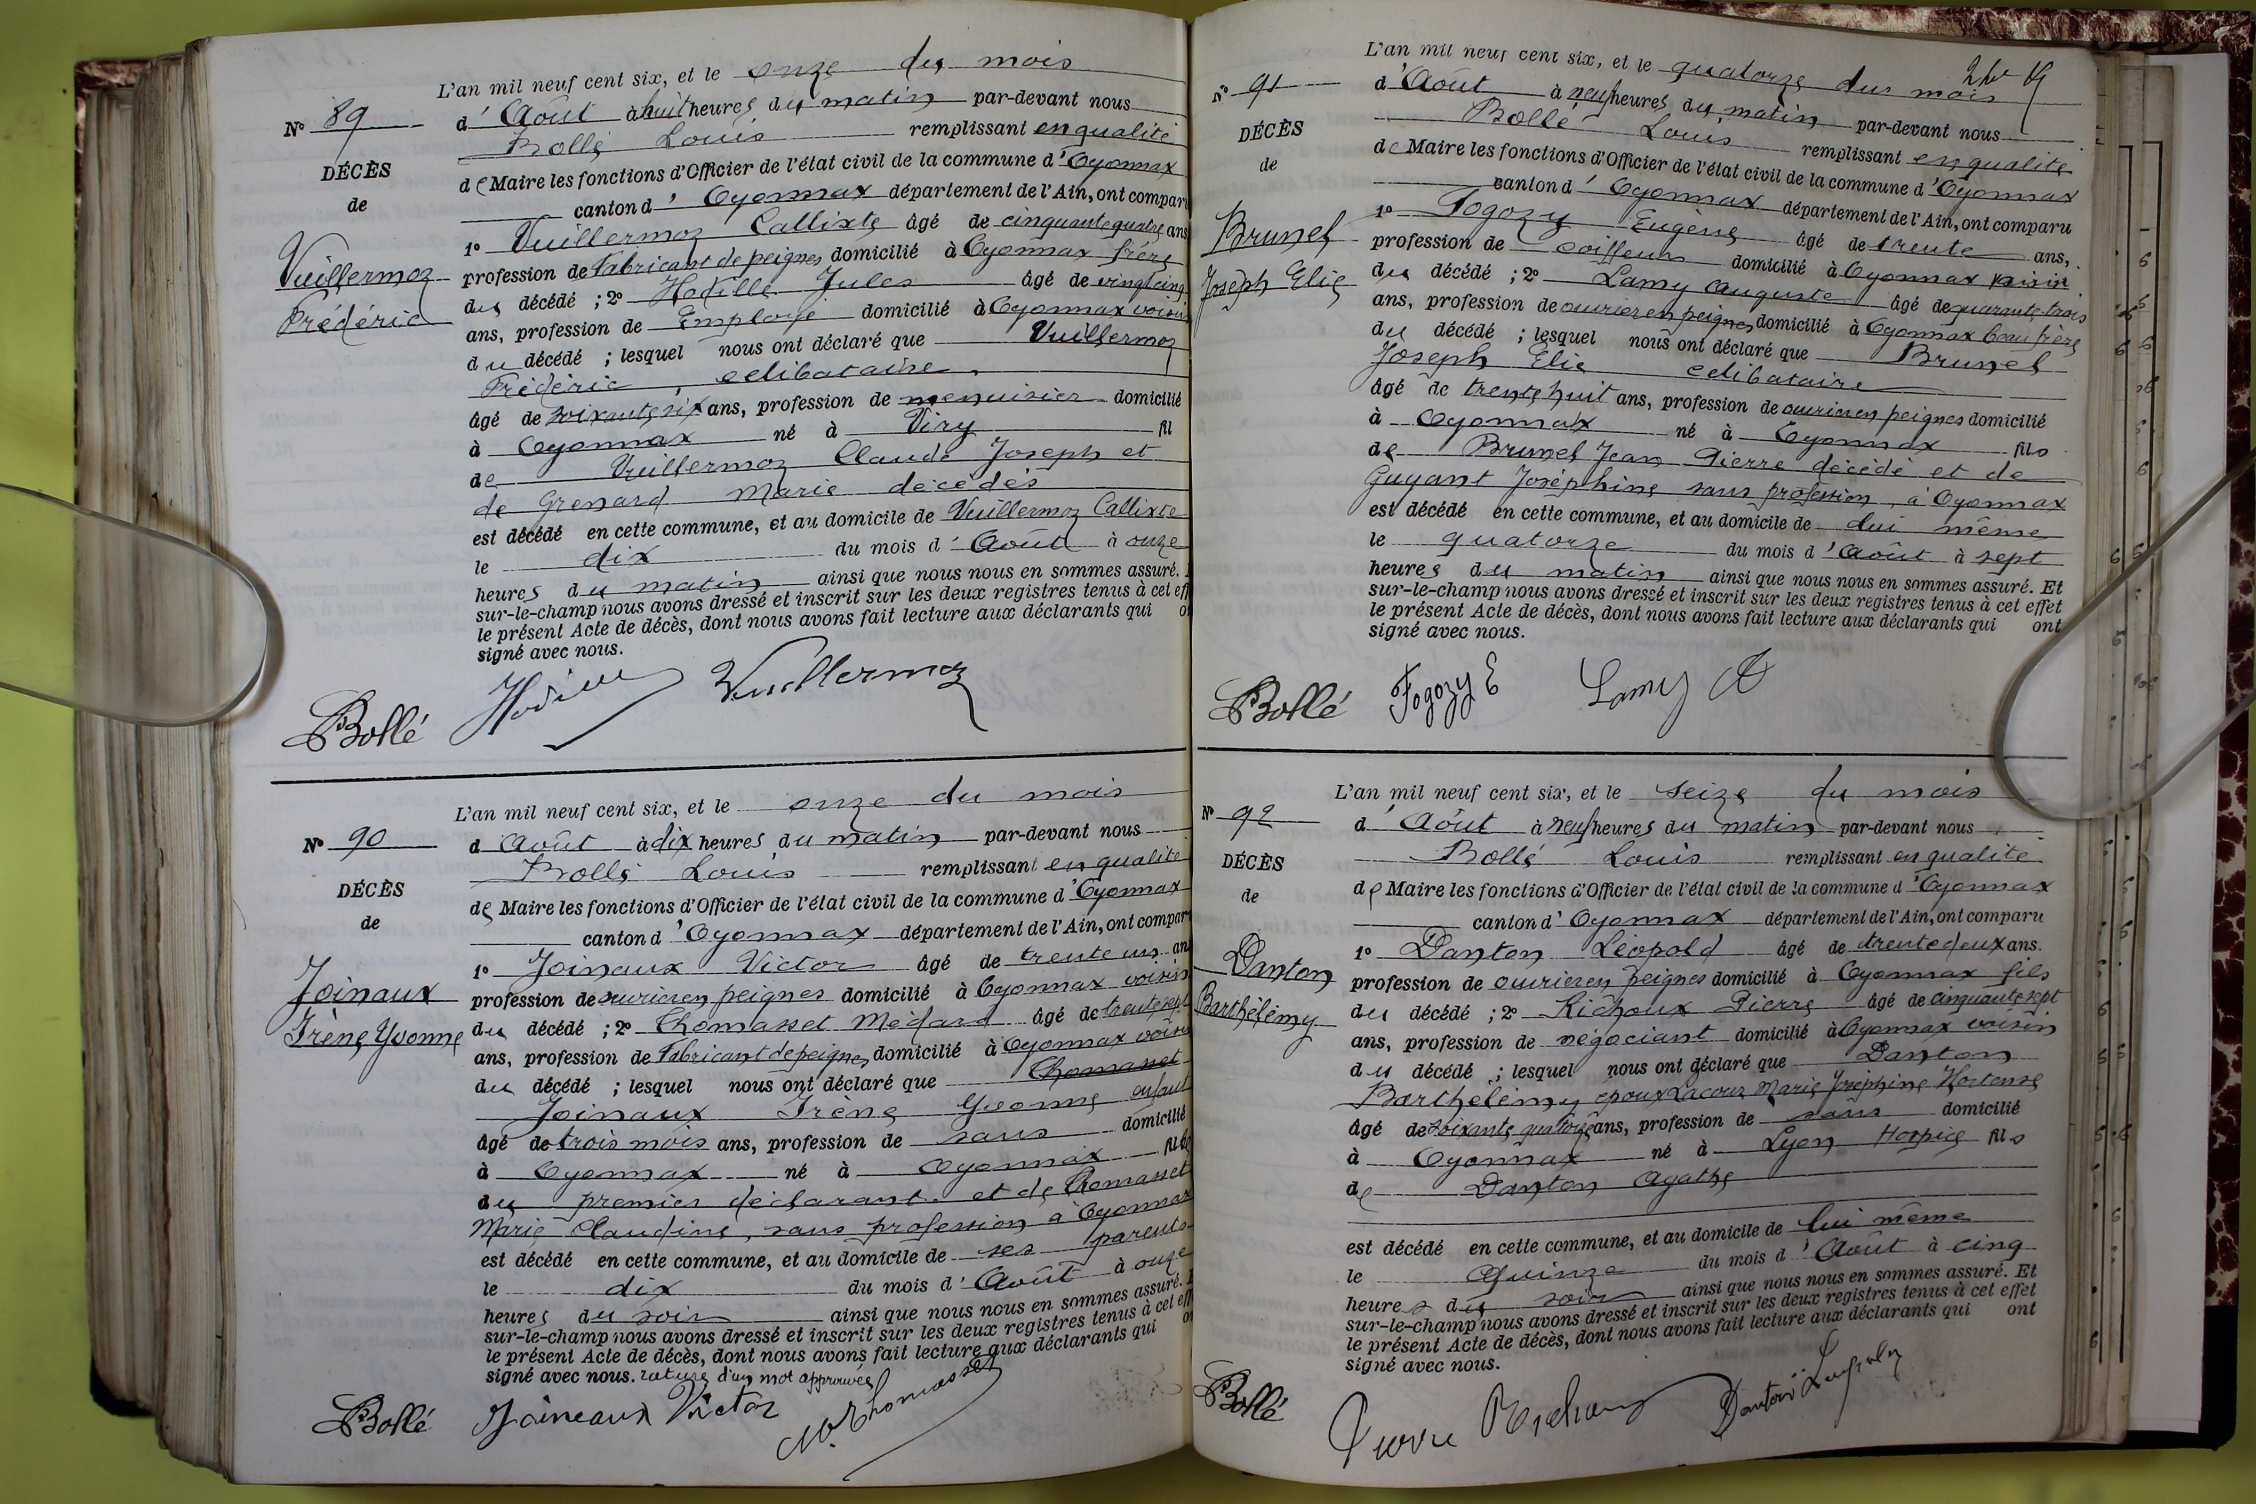 L'an mil neuf cent six, et le onze du mois
N° 89
d'Août à huit heures du matin par-devant nous
Bollé Louis remplissant en qualité
DÉCÈS
de Maire les fonctions d'Officier de l'état civil de la commune d'Oyonnax
de
canton d'Oyonnax département de l'Ain, ont comparu
1° Vuillermoz Callixte âgé de cinquante quatre ans
Vuillermoz
Frédéric
profession de Fabricant de peignes domicilié à Oyonnax frère
du décédé ; 2° Hodille Jules âgé de vingt cinq
ans, profession de Employé domicilié à Oyonnax voisin
du décédé ; lesquel nous ont déclaré que Vuillermoz
Frédéric, célibataire,
âgé de soixante six ans, profession de menuisier domicilié
à Oyonnax né à Viry fil
de Vuillermoz Claude Joseph et
de Grenard Marie décédés
est décédé en cette commune, et au domicile de Vuillermoz Callixte
le dix du mois d'Août à onze
heures du matin ainsi que nous nous en sommes assuré.
sur-le-champ nous avons dressé et inscrit sur les deux registres tenus à cet eff
le présent Acte de décès, dont nous avons fait lecture aux déclarants qui o
signé avec nous.
Bollé Hodille Vuillermoz
L'an mil neuf cent six, et le onze du mois
N° 90
d Août à dix heures du matin par-devant nous
Bollé Louis remplissant en qualité
DÉCÈS
de Maire les fonctions d'Officier de l'état civil de la commune d'Oyonnax
de
canton d'Oyonnax département de l'Ain, ont comparu
1° Joinaux Victor âgé de trente un ans
Joinaux
Irène Yvonne
profession de ouvrier en peignes domicilié à Oyonnax voisin
du décédé ; 2° Thomasset Médard âgé de trente sept
ans, profession de Fabricant de peignes domicilié à Oyonnax voisin
du décédé ; lesquel nous ont déclaré que Thomasset
Joinaux Irène Yvonne enfant
âgé de trois mois ans, profession de sans domicilié
à Oyonnax né à Oyonnax fil
du premier déclarant et de Thomasset
Marie Claudine, sans profession à Oyonnax
est décédé en cette commune, et au domicile de ses parents
le dix du mois d'Août à onze
heures du soir ainsi que nous nous en sommes assuré.
sur-le-champ nous avons dressé et inscrit sur les deux registres tenus à cet eff
le présent Acte de décès, dont nous avons fait lecture aux déclarants qui o
signé avec nous. rature d'un mot approuvée
Bollé Joineaux Victor M. Thomasset
L'an mil neuf cent six, et le quatorze du mois
N° 91
d'Août à neuf heures du matin par-devant nous
Bollé Louis remplissant en qualité
DÉCÈS
de Maire les fonctions d'Officier de l'état civil de la commune d'Oyonnax
de
canton d'Oyonnax département de l'Ain, ont comparu
1° Fogozy Eugène âgé de trente ans,
Brunel
Joseph Elie
profession de coiffeur domicilié à Oyonnax voisin
du décédé ; 2° Lamy Auguste âgé de quarante trois
ans, profession de ouvrier en peignes domicilié à Oyonnax beau frère
du décédé ; lesquel nous ont déclaré que Brunel
Joseph Elie célibataire
âgé de trente huit ans, profession de ouvrier en peignes domicilié
à Oyonnax né à Oyonnax fils
de Brunel Jean Pierre décédé et de
Guyant Joséphine sans profession, à Oyonnax
est décédé en cette commune, et au domicile de lui même
le quatorze du mois d'Août à sept
heures du matin ainsi que nous nous en sommes assuré. Et
sur-le-champ nous avons dressé et inscrit sur les deux registres tenus à cet effet
le présent Acte de décès, dont nous avons fait lecture aux déclarants qui ont
signé avec nous.
Bollé Fogozy E Lamy A
L'an mil neuf cent six, et le seize du mois
N° 92
d'Août à neuf heures du matin par-devant nous
Bollé Louis remplissant en qualité
DÉCÈS
de Maire les fonctions d'Officier de l'état civil de la commune d'Oyonnax
de
canton d'Oyonnax département de l'Ain, ont comparu
1° Danton Léopold âgé de trente deux ans.
Danton
Barthélemy
profession de ouvrier en peignes domicilié à Oyonnax fils
du décédé ; 2° Richoux Pierre âgé de cinquante sept
ans, profession de négociant domicilié à Oyonnax voisin
du décédé ; lesquel nous ont déclaré que Danton
Barthélemy époux Lacour Marie Joséphine Hortense
âgé de soixante quatorze ans, profession de sans domicilié
à Oyonnax né à Lyon Hospice fils
de Danton Agathe
est décédé en cette commune, et au domicile de lui même
le quinze du mois d'Août à cinq
heures du soir ainsi que nous nous en sommes assuré. Et
sur-le-champ nous avons dressé et inscrit sur les deux registres tenus à cet effet
le présent Acte de décès, dont nous avons fait lecture aux déclarants qui ont
signé avec nous.
Bollé Pierre Richoux Danton